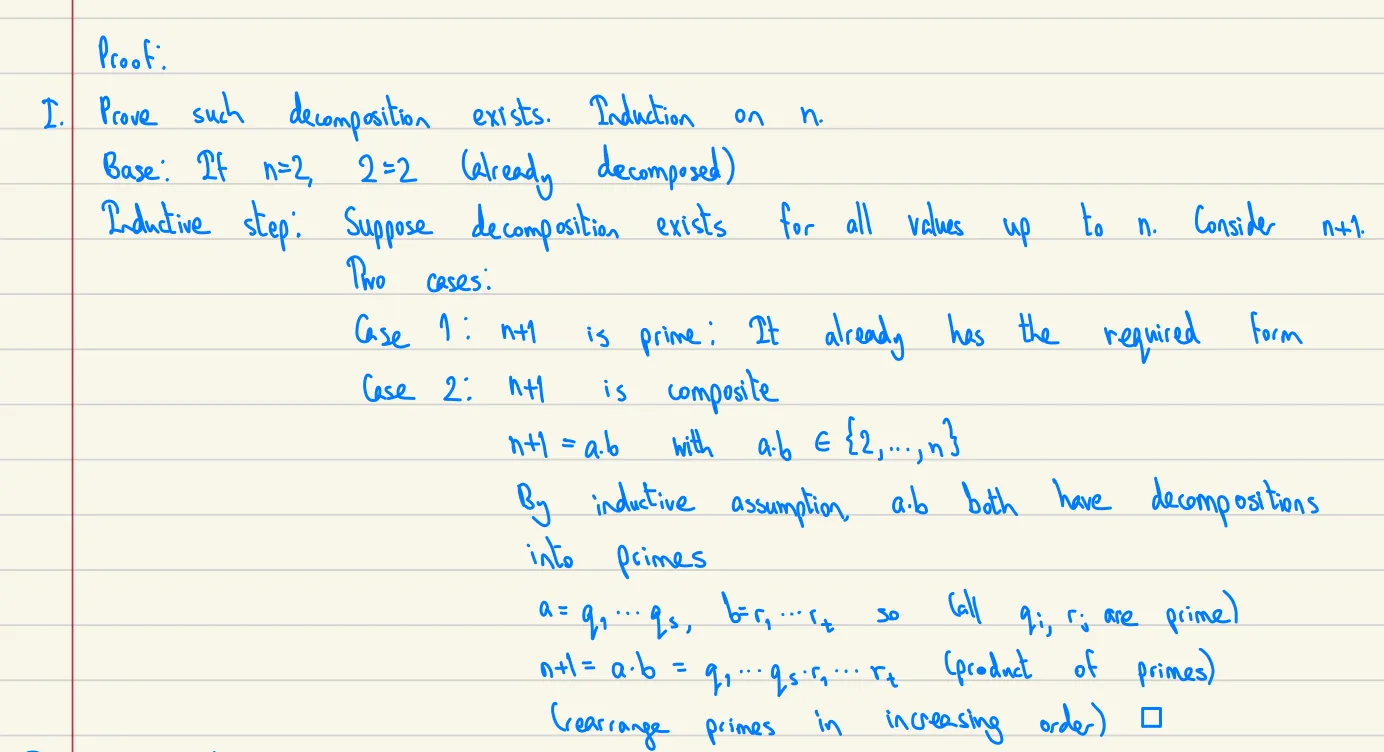 Proof:
I. Prove such decomposition exists. Induction on n.
Base: If n=2, 2=2 (already decomposed)
Inductive step: Suppose decomposition exists for all values up to n. Consider n+1.
Two cases:
Case 1: n+1 is prime: It already has the required form
Case 2: n+1 is composite
n+1 = a·b with a·b ∈ {2,...,n}
By inductive assumption, a·b both have decompositions
into primes
a = q₁ ··· qₛ, b = r₁ ··· rₜ so (all qᵢ, rⱼ are prime)
n+1 = a·b = q₁ ··· qₛ · r₁ ··· rₜ (product of primes)
(rearrange primes in increasing order) □